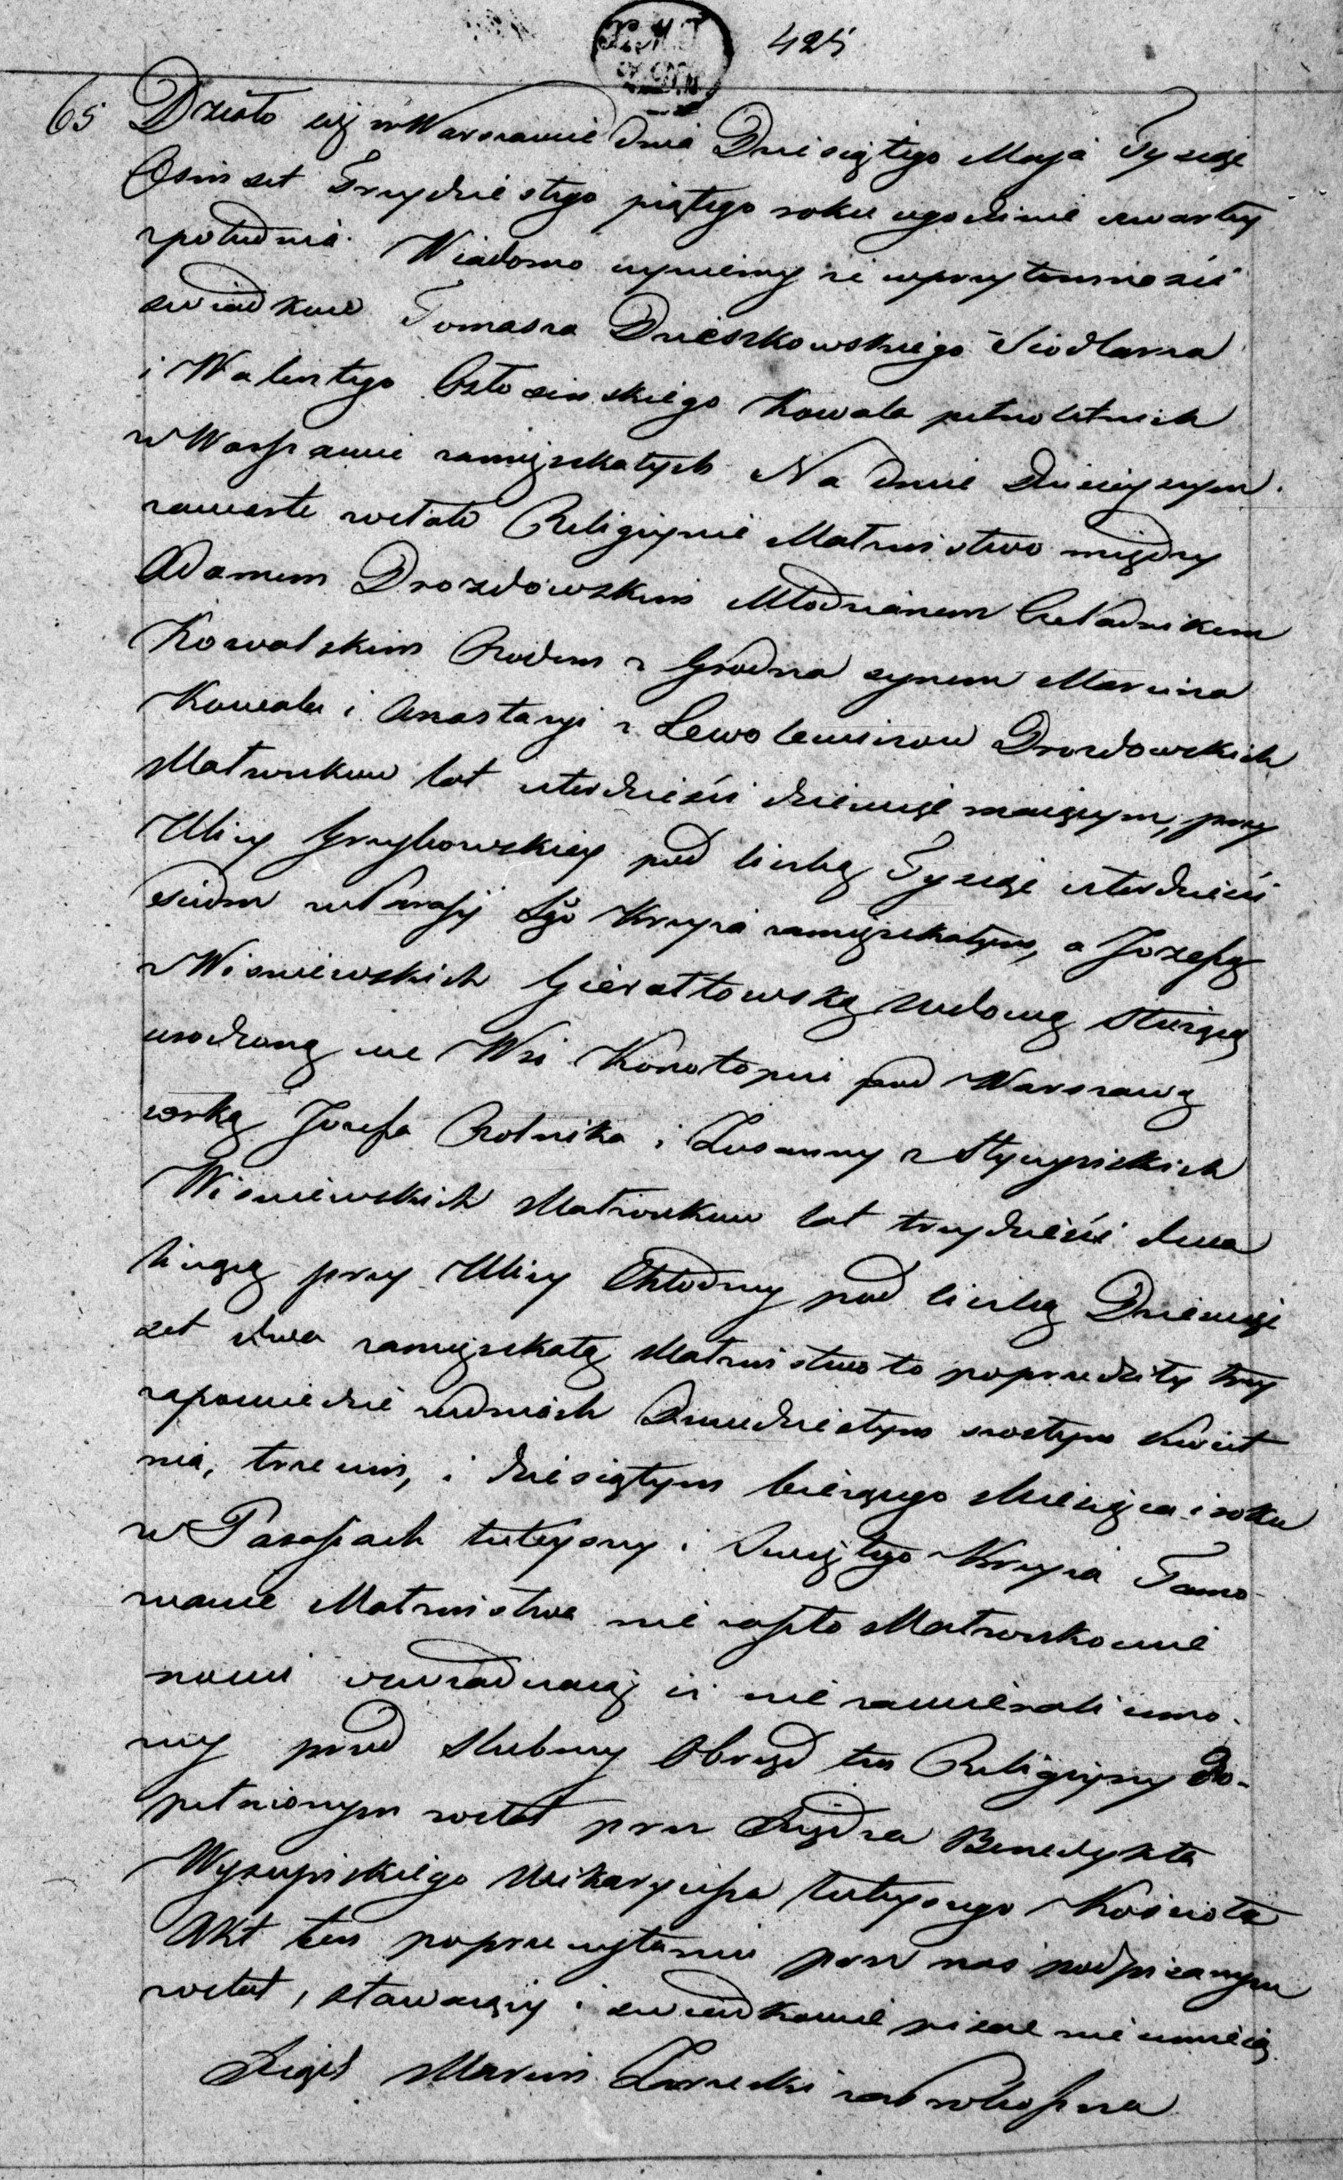 425
65 Działo się w Warszawie dnia Dziesiątego Maja Tysiąc
Osimset Trzydziestego piątego roku ogodzinie czwartey
zpołudnia. Wiadomo czyniemy że wprzytomności
swiadkow Tomasza Dzieszkowskiego Siodlarza
i Walentego Kowala pełnoletnich
w Warszawie zamięszkałych Na dniu dzisieyszym
zawarte zostało Religiynie Małżeństwo między
Adamem Drozdowskim Młodzianem Czeladnikem
Kowalskim Rodem z Grodna synem Marcina
Kowala i Anastazyi z Drozdowskich
Małżonkow lat czterdzieści dziewięć maiącym, przy
Ulicy Grzybowskiey pod liczbą Tysiąc czterdzieści
siedm w Parafij Sgo Krzyża zamięszkałym, a Jozefą
z Wisniewskich Gierałtowską wdową służącą
urodzoną we Wsi Konotopie pod Warszawą
corką Jozefa Rolnika i Zuzanny z
Wisniewskich Małżonkow lat trzydzieści dwa
liczącą przy Ulicy Chłodney pod liczbą Dziewięć
set dwa zamięszkałą Małżeństwo to poprzedziły trzy
zapowiedzie wdniach Dwudziestym szostym Kwiet
nia, trzecim, i dziesiątym bieżącego Miesiąca i roku
w Parafiach tuteyszey i Swiętego Krzyża Tamo-
wanie Małżeństwa nie zaszło Małżonkowie
nowi oswiadczaią iż nie zawierali umo-
wy przed slubney Obrząd ten Religiyny do-
pełnionym został przez Xiędza Benedykta
Wikaryusza tuteyszego Kościoła
Akt ten poprzeczytaniu przez nas podpisanym
został, stawaiący i swiadkowie pisać nie umieią
Xiądz Marcin za Proboszcza